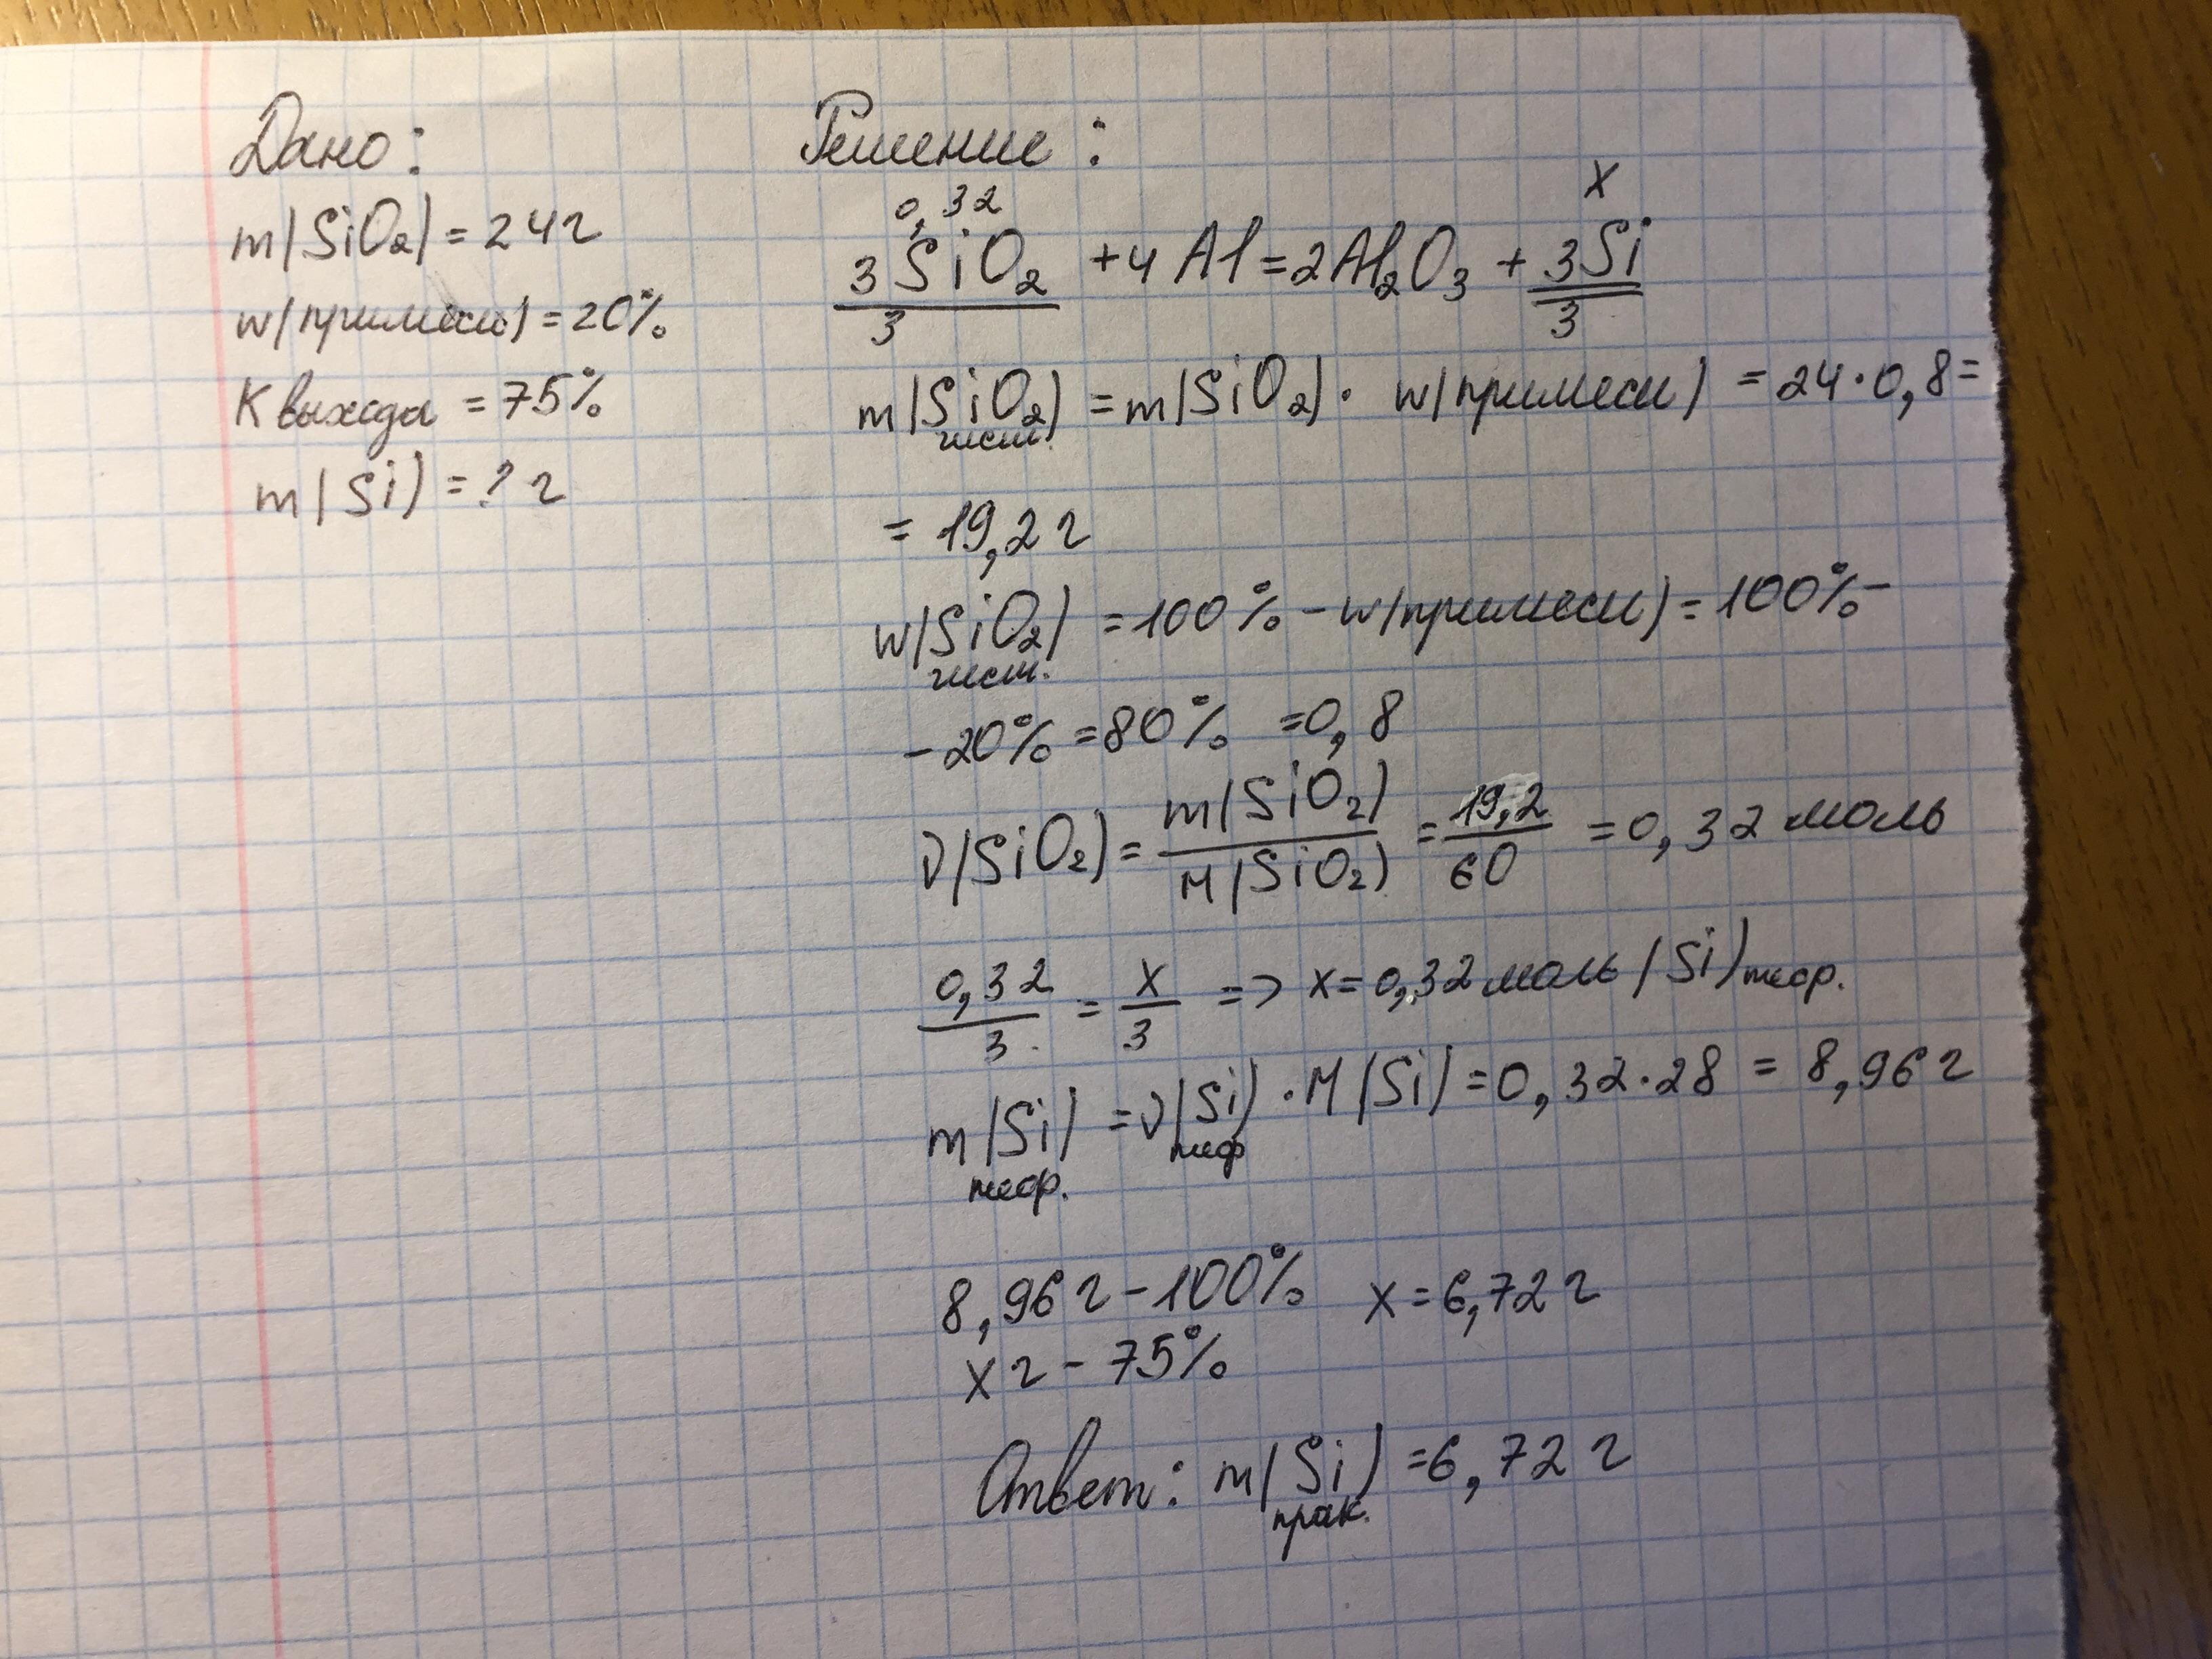 Дано:
m(SiO₂) = 24 г
w(примеси) = 20%
К выхода = 75%
m(Si) = ? г
Решение:
0,32 x
3SiO₂ + 4Al = 2Al₂O₃ + 3Si
3 3
m(SiO₂) = m(SiO₂) · w(примеси) = 24 · 0,8 =
чист.
= 19,2 г
w(SiO₂) = 100% - w(примеси) = 100% -
чист.
- 20% = 80% = 0,8
ν(SiO₂) = m(SiO₂) / M(SiO₂) = 19,2 / 60 = 0,32 моль
0,32 / 3 = x / 3 => x = 0,32 моль (Si) теор.
m(Si) = ν(Si) · M(Si) = 0,32 · 28 = 8,96 г
теор. теор
8,96 г - 100% x = 6,72 г
x г - 75%
Ответ: m(Si) = 6,72 г
прак.